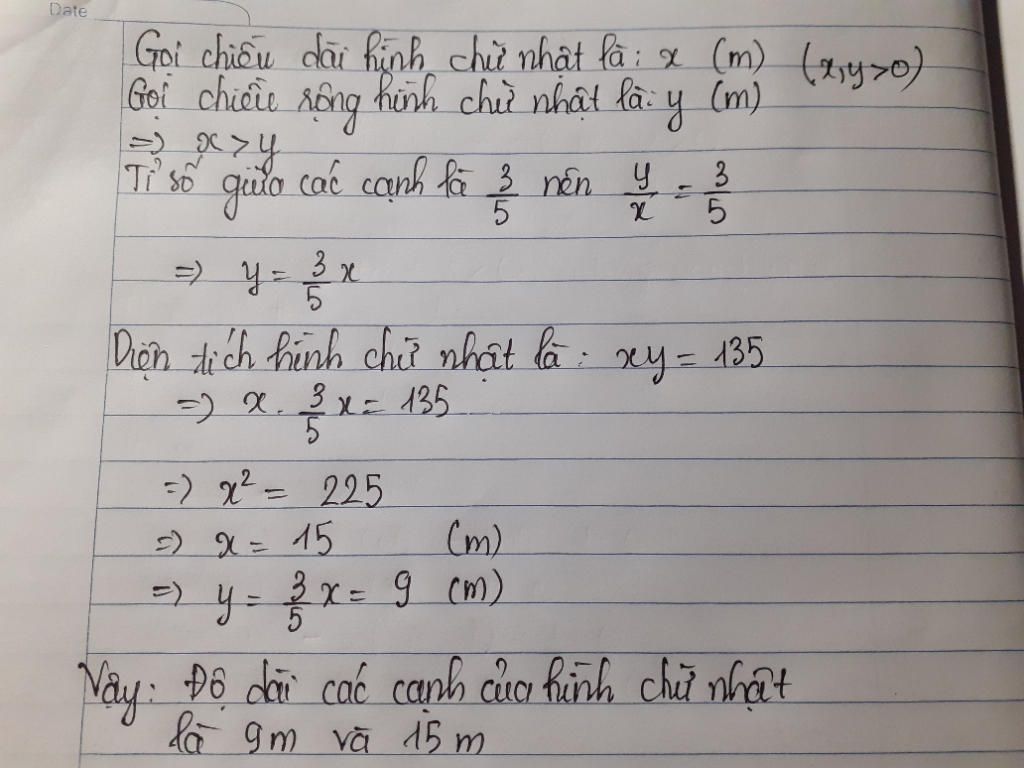 Date
Gọi chiều dài hình chữ nhật là: x (m) (x,y>0)
Gọi chiều rộng hình chữ nhật là: y (m)
=> x > y
Tỉ số giữa các cạnh là 3/5 nên y/x = 3/5
=> y = 3/5 x
Diện tích hình chữ nhật là: xy = 135
=> x . 3/5 x = 135
=> x² = 225
=> x = 15 (m)
=> y = 3/5 x = 9 (m)
Vậy: Độ dài các cạnh của hình chữ nhật
là 9m và 15m